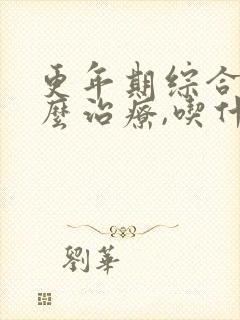 更年期綜合
麼治療,喫什
劉華